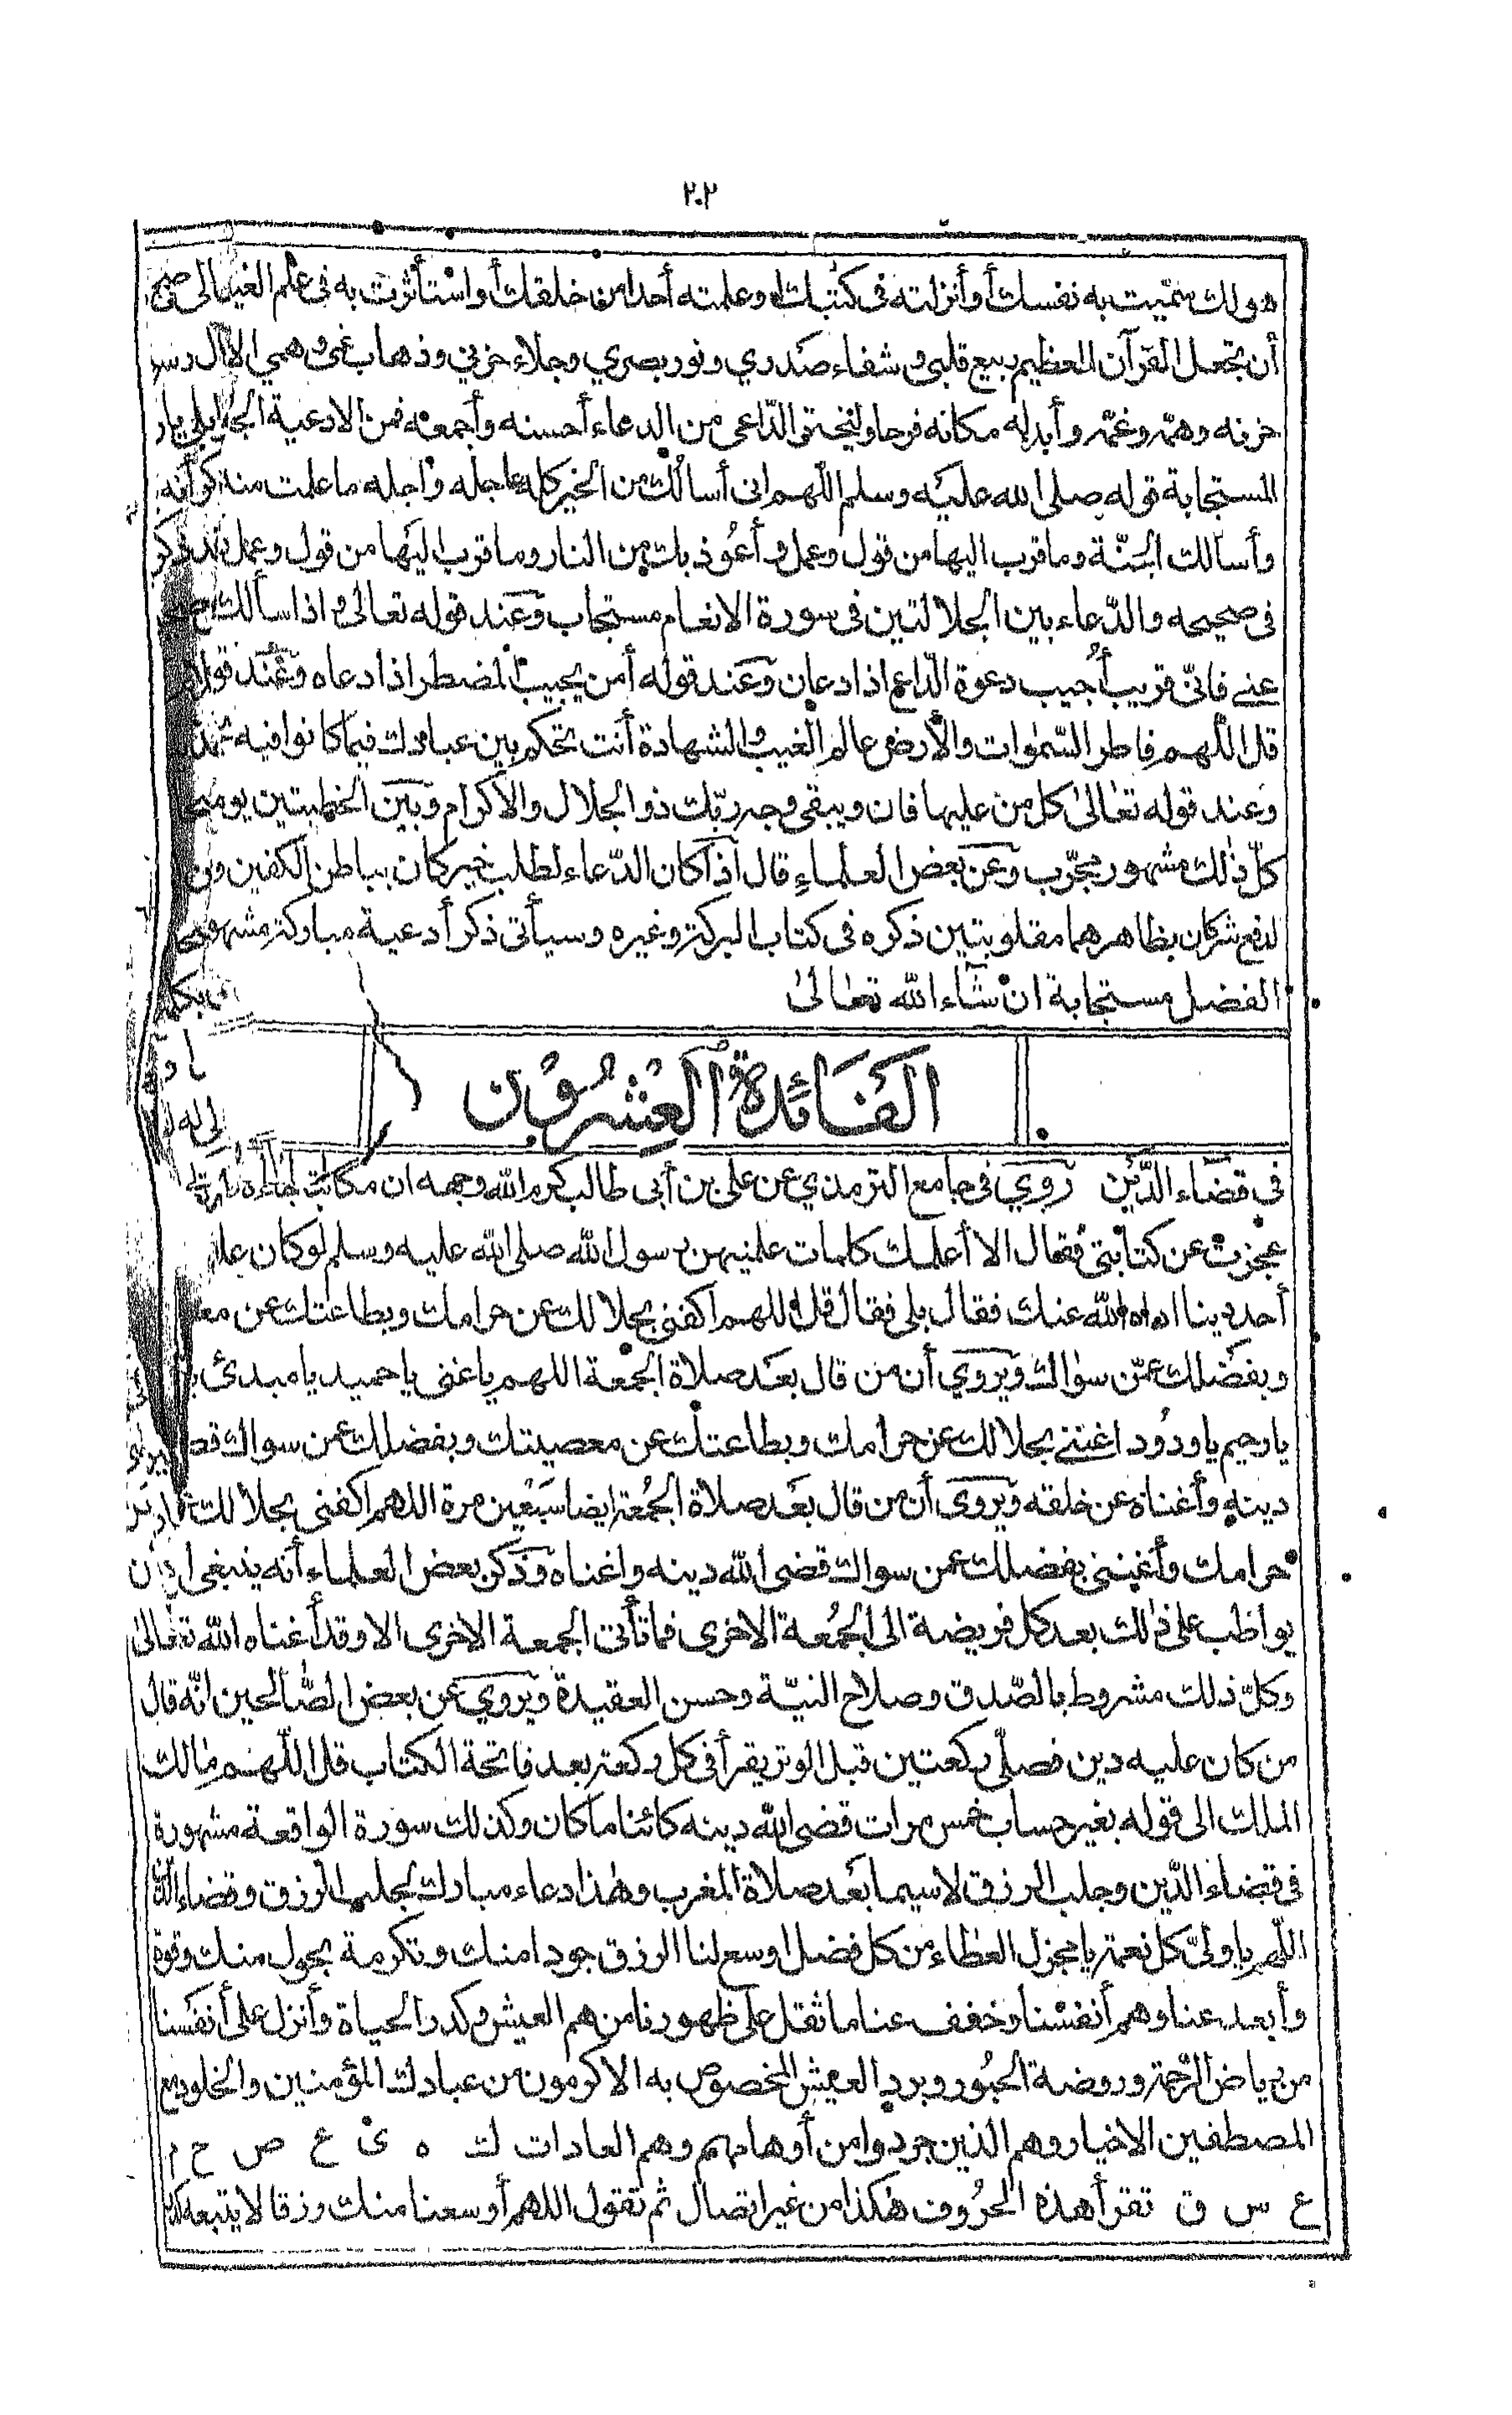 ٢٠٢
هو لك سميت به نفسك أو أنزلته في كتبك أو علمته أحدا من خلقك أو استأثرت به في علم الغيب
أن تجعل القرآن العظيم ربيع قلبي وشفاء صدري ونور بصري وجلاء حزني وذهاب غمي وهمي الا
حزنه وهمّه وغمّه وأبدله مكانه فرحا وليختر الدّاعى من الدعاء أحسنه وأجمعه فمن الادعية
المستجابة قوله صلى الله عليه وسلم اللّهم انى أسألك من الخير كله عاجله واجله ما علمت منه
وأسألك الجنّة وما قرب اليها من قول وعمل وأعوذ بك من النار وما قرب اليها من قول وعمل
في صحيحه والدّعاء بين الجلالتين فى سورة الانعام مستجاب وعند قوله تعالى واذا سألك
عنى فانّى قريب أُجيب دعوة الدّاع اذا دعان وعند قوله أمن يجيب المضطر اذا دعاه وعند قوله
قل اللّهم فاطر السّموات والأرض عالم الغيب والشهادة أنت تحكم بين عبادك فيما كانوا فيه
وعند قوله تعالىٰ كل من عليها فان ويبقى وجه ربّك ذو الجلال والاكرام وبين الخطبتين يوم
كلّ ذٰلك مشهور مجرّب وعن بعض العلماء قال اذا كان الدّعاء لطلب خير كان بباطن الكفين ومن
لدفع شر كان بظاهرهما مقلوبتين ذكره فى كتاب البركة وغيره وسيأتى ذكر أدعية مباركة مشهورة
الفضل مستجابة ان شاء الله تعالىٰ
الفَائدة العِشرُون
في قضاء الدّين روي فى جامع الترمذي عن على بن أبى طالب كرم الله وجهه ان مكاتبا جاءه
عجزت عن كتابتى فقال الا أعلمك كلمات علمنيهن رسول الله صلى الله عليه وسلم لو كان
أحد دينا اداه الله عنك فقال بلى فقال قل اللهم اكفنى بحلالك عن حرامك وبطاعتك عن
وبفضلك عمّن سواك ويروي أن من قال بعد صلاة الجمعة اللهم يا غنى يا حميد يا مبدئ
يا رحيم يا ودُود اغننى بحلالك عن حرامك وبطاعتك عن معصيتك وبفضلك عمن سواك
دينه وأغناه عن خلقه ويروى أن من قال بعد صلاة الجُمعة ايضا سَبْعين مرة اللهم اكفنى بحلالك
حرامك وأغننى بفضلك عمن سواك قضى الله دينه واغناه وذكر بعض العلماء أنه ينبغى
يواظب على ذٰلك بعد كل فريضة الى الجُمُعة الاخرى فما تأتى الجمعة الاخرى الا وقد أغناه الله تعالىٰ
وكلّ ذلك مشروط بالصّدق وصلاح النيّة وحسن العقيدة ويروي عن بعض الصّالحين انّه قال
من كان عليه دين فصلّى ركعتين قبل الوتر يقرأ فى كل ركعة بعد فاتحة الكتاب قل اللّهم مالك
الملك الى قوله بغير حساب خمس مرات قضى الله دينه كائنا ما كان وكذلك سورة الواقعة مشهورة
في قضاء الدّين وجلب الرزق لاسيما بعد صلاة المغرب وهٰذا دعاء مبارك لجلب الرزق وقضاء الدّين
اللّهم يا ولىّ كل نعمة يا مجزل العطاء من كل فضل اوسع لنا الرزق جودا منك وتكرمة بحول منك وقوة
وأبعد عنا وهم أنفسنا وخفف عنا ما ثقل على ظهورنا من هم العيش وكدر الحياة وأنزل على أنفسنا
من رياض الرّحمة وروضة الحُبُور وبرد العيش المخصوص به الاكرمون من عبادك المؤمنين والخلود مع
المصطفين الاخيار وهم الذين جردوا من أوهامهم وهم العادات ك ه ى ع ص ح م
ع س ق تقرأ هذه الحُرُوف هٰكذا من غير اتصال ثم تقول اللهم أوسعنا منك رزقا لا يتبعه